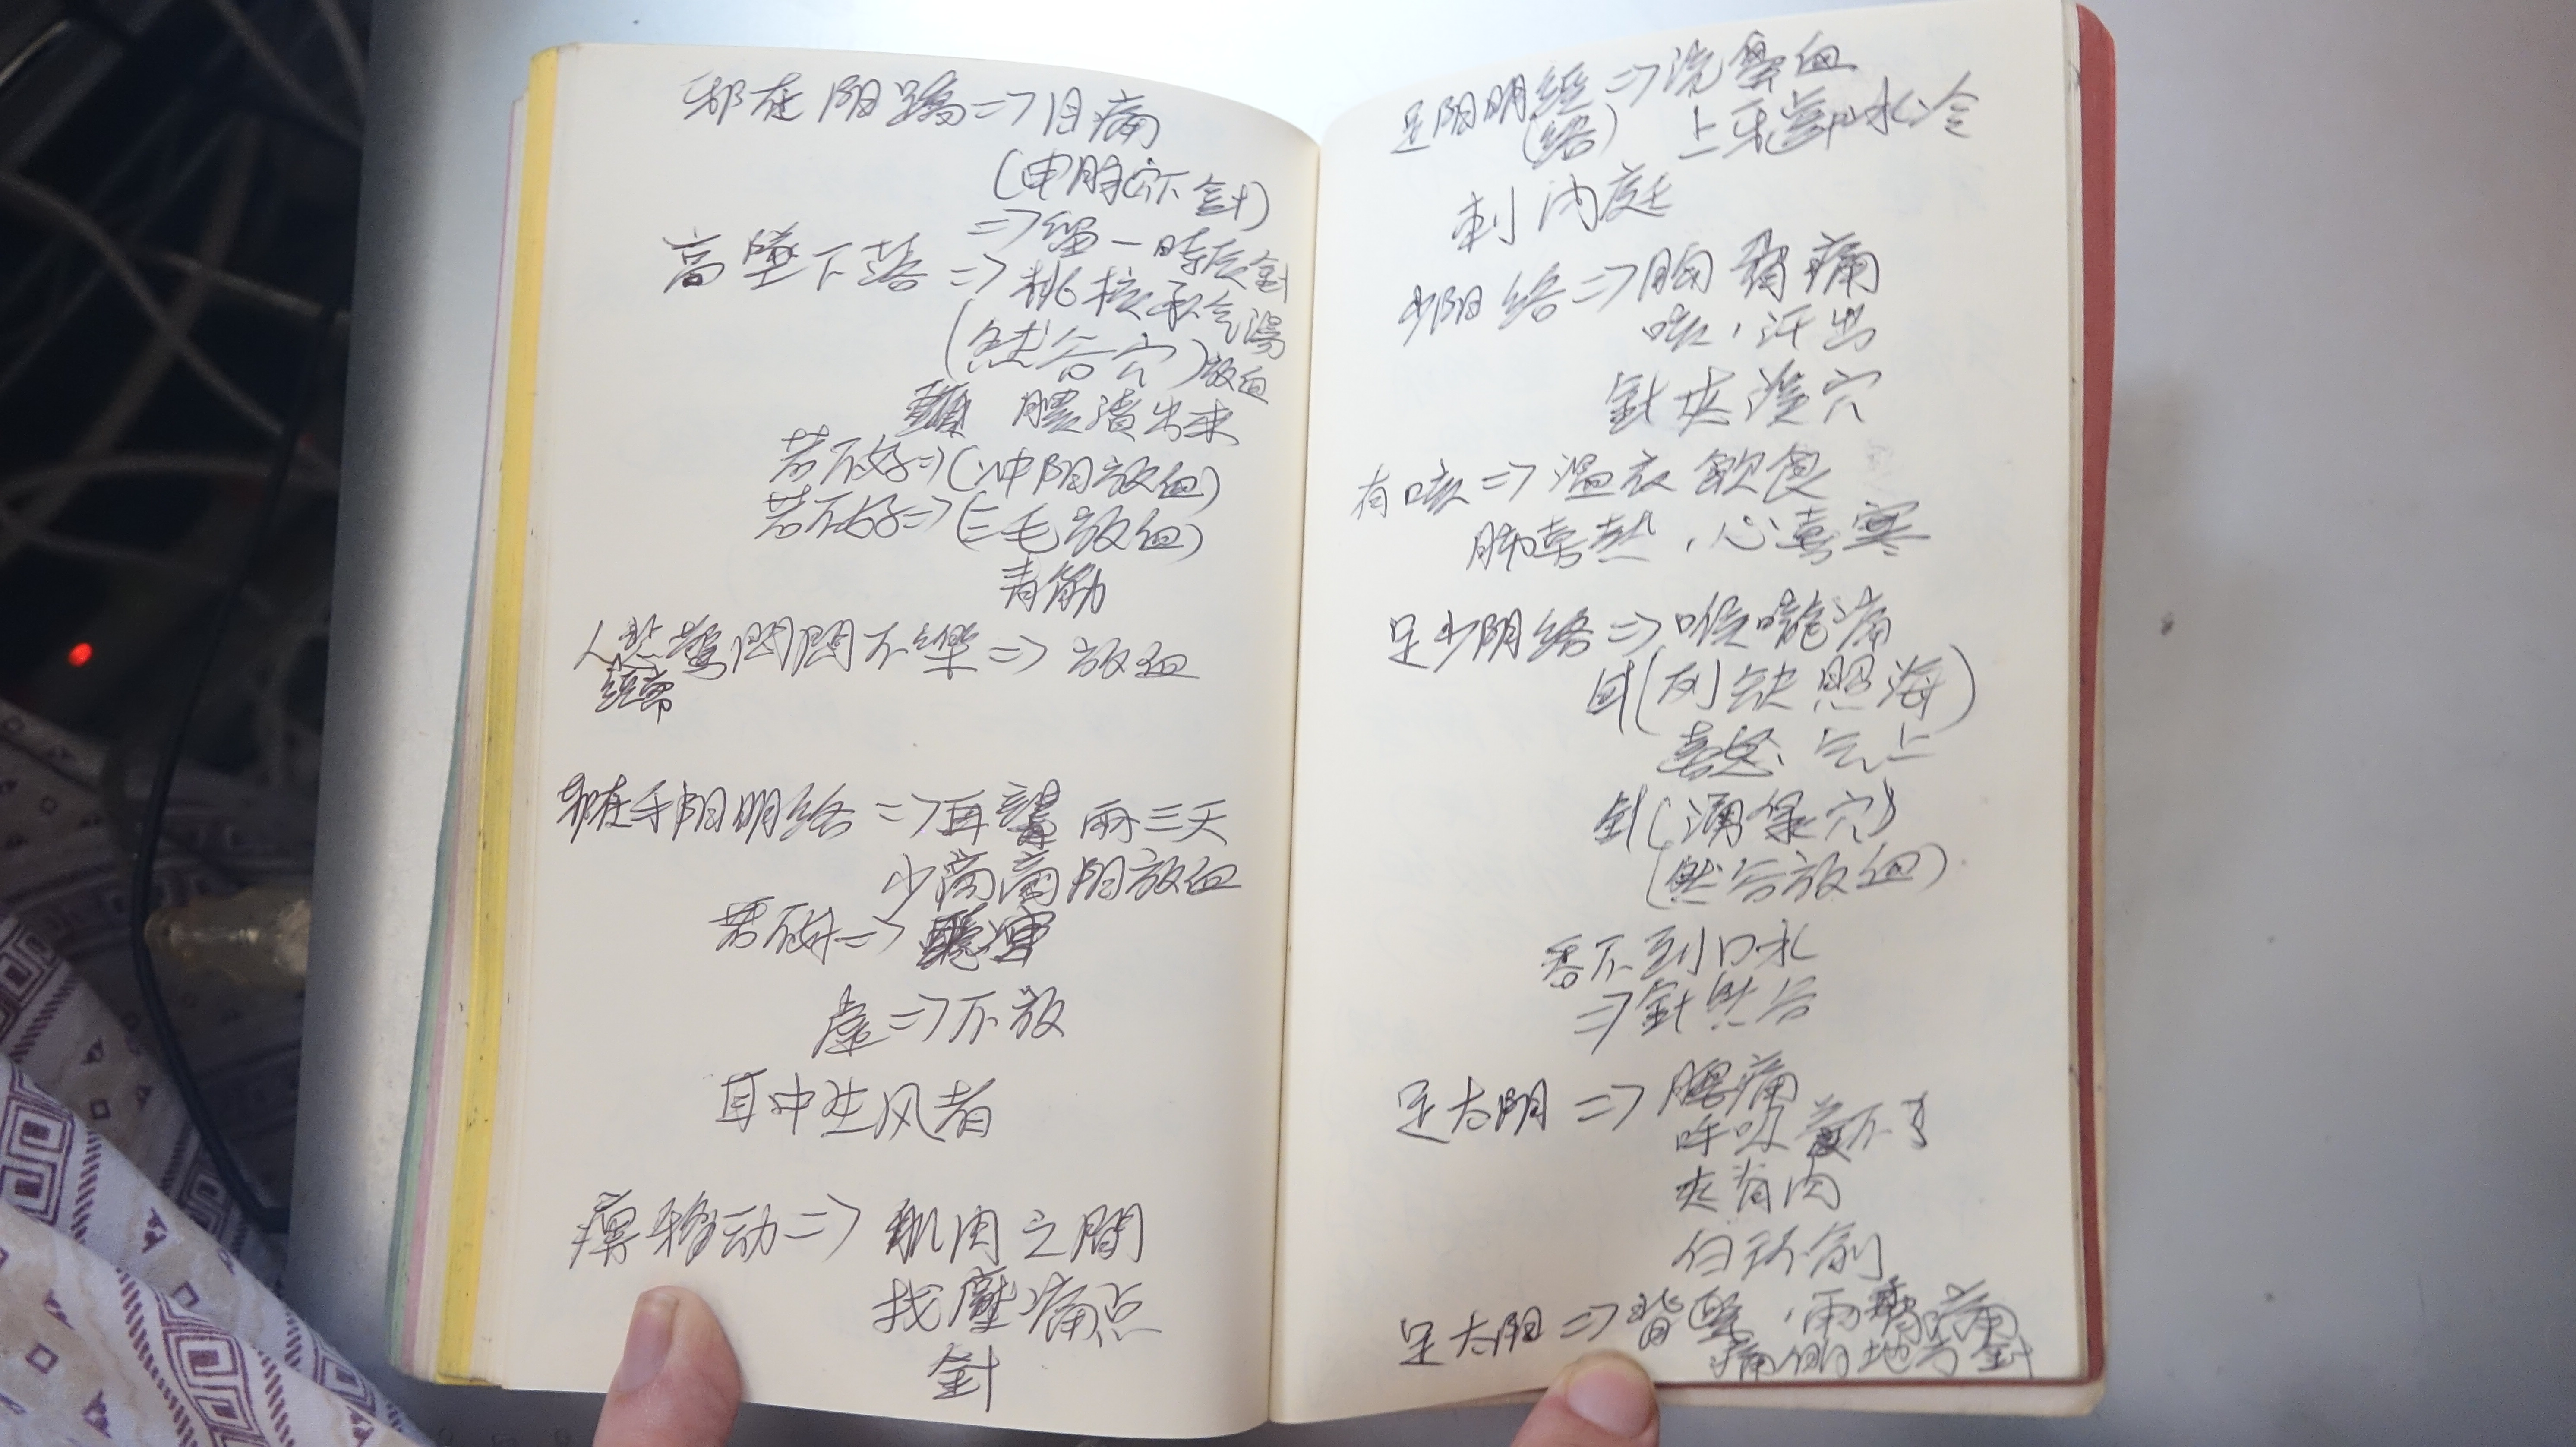 邪在阳蹻=>目痛
(申脉穴下針)
=>留一時辰針
高墮下落=>桃核承气湯
(然谷穴)放血
膿潰出来
若不好=>(冲阳放血)
若不好=>(三毛放血)
青筋
人悲驚悶悶不樂=>放血
經常
邪在手阳明絡=>耳聾 兩三天
少商商阳放血
若不好=>聽宮
虛=>不放
耳中生风者
痹移动=>肌肉之間
找壓痛点
針
足阳明經=>流鼻血
(絡) 上牙 冰冷
刺内庭
少阳絡=>胸脅痛
咳,汗出
針夾溪穴
有咳=>溫衣飲食
肺喜熱,心喜寒
足少阴絡=>喉嚨痛
(列缺照海)
喜怒、气上
針(湧泉穴)
(然谷放血)
吞不到口水
=>針然谷
足太阴=>腰痛
呼吸 不了
夾脊肉
足太阳=>背 ,兩 痛
痛 地方針